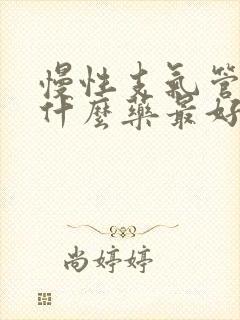 慢性支气管
什麼药最好
尚婷婷